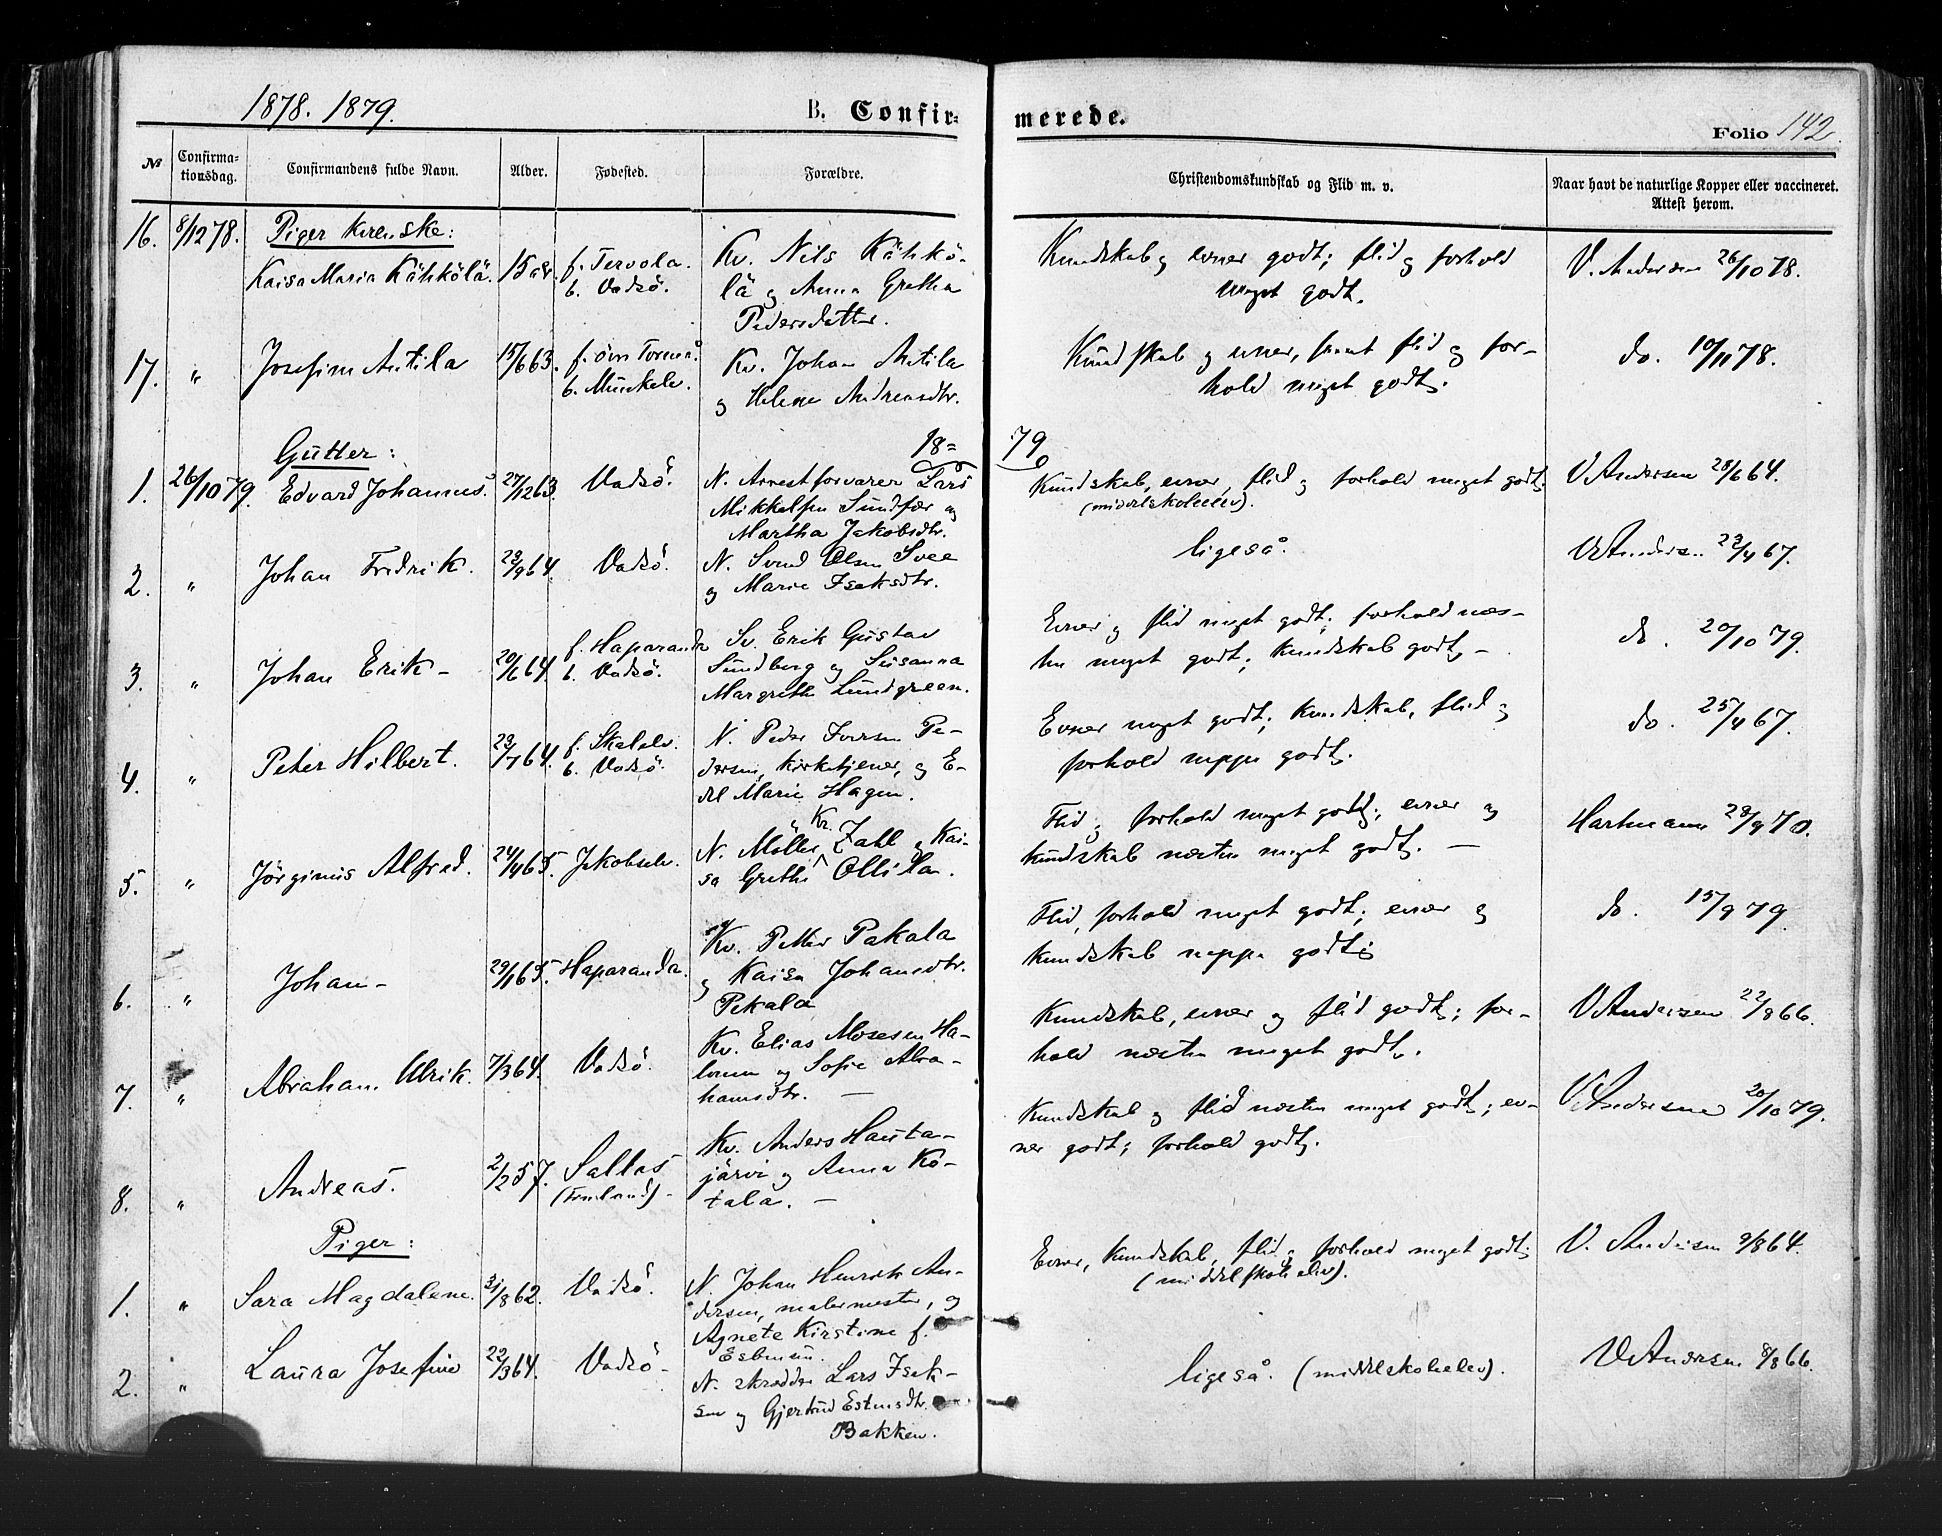 1878. 1879.
B. Confir-
merede.
Folio 142.
№
Confirma-
tionsdag.
Confirmandens fulde Navn.
Alder.
Fødested.
Forældre.
Christendomskundskab og Flid m. v.
Naar havt de naturlige Kopper eller vaccineret.
Attest herom.
Piger kvenske:
16. 8/12 78. Kaisa Maria Kähkölä. 15 aar.
f. Tervola.
b. Vadsö.
Kv. Nils Kähkö-
lä og Anna Gretha
Pedersdatter.
Kundskab og evner godt; flid og forhold
meget godt.
V. Andersen 26/10 78.
17. " Josefine Antila 15/6 63.
f. övre Torneå.
b. Munkelv.
Kv. Johan Antila
og Helene Andreasdtr.
Kundskab og evner, samt flid og for-
hold meget godt.
do. 10/11 78.
18=
79
Gutter:
1. 26/10 79. Edvard Johannes. 27/12 63. Vadsö.
N. Arrestforvarer Lars
Mikkelsen Sundfær og
Martha Jakobsdtr.
Kundskab, evner, flid og forhold meget godt.
(middelskoleelev).
V Andersen 28/6 64.
2. " Johan Fredrik. 29/9 64. Vadsö.
N. Svend Olsen Svee
og Marie Isaksdtr.
ligeså.
V Andersen 23/4 67.
3. " Johan Erik - 20/6 64.
f. Haparanda
b. Vadsö.
Sv. Erik Gustav
Sundberg og Susanna
Margrethe Lundgreen.
Evner og flid meget godt; forhold næs-
ten meget godt; kundskab godt -
do. 20/10 79.
4. " Peter Hilbert. 23/7 64.
f. Skalelv.
b. Vadsö.
N. Peder Iversen Pe-
dersen, kirketjener, og E-
del Marie Hagen.
Evner meget godt; kundskab, flid og
forhold neppe godt.
do. 25/4 67.
5. " Jörginus Alfred. 24/4 65. Jakobselv.
N. Möller Kr. Zahl og Kai-
sa Grethe Ollila.
Flid og forhold meget godt; evner og
kundskab næsten meget godt. -
Hartmann 28/9 70.
6. " Johan - 29/1 65. Haparanda.
Kv. Petter Pakala
og Kaisa Johansdtr.
Pekala
Flid, forhold meget godt; evner og
kundskab neppe godt;
do. 15/9 79.
7. " Abraham Ulrik. 7/3 64. Vadsö.
Kv. Elias Mosesen Ha-
lonen og Sofie Abra-
hamsdtr. -
Kundskab, evner og flid godt; for-
hold næsten meget godt.
V Andersen 22/8 66.
8. " Andreas. 2/2 57. Sallas
(Finland) -
Kv. Anders Hauta-
järvi og Anna Ko-
tala. -
Kundskab og flid næsten meget godt; ev-
ner godt; forhold godt.
V Andersen 20/10 79.
Piger:
1. " Sara Magdalene. 31/8 62. Vadsö.
N. Johan Henrik An-
dersen, malermester, og
Agnete Kirstine f.
Esbensen.
Evner, kundskab, flid og forhold meget godt;
(middelskoleelev).
V. Andersen 9/8 64.
2. " Laura Josefine 22/3 64. Vadsö -
N. skrædder Lars Isak-
sen og Gjertrud Estensdtr.
Bakken.
ligeså. (middelskoleelev).
V Andersen 8/8 66.